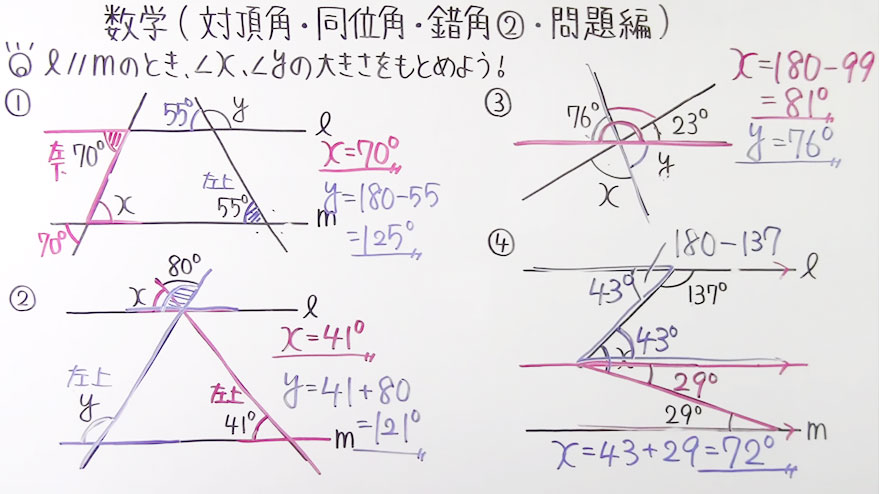 数学(対頂角・同位角・錯角②・問題編)
l//mのとき、∠x、∠yの大きさをもとめよう!
①
55°
y
l
左下
70°
x
左上
55°
m
70°
x=70°
y=180-55
=125°
②
80°
x
l
左上
y
左上
41°
m
x=41°
y=41+80
=121°
③
76°
23°
y
x
x=180-99
=81°
y=76°
④
180-137
l
43°
137°
43°
x
29°
29°
m
x=43+29=72°